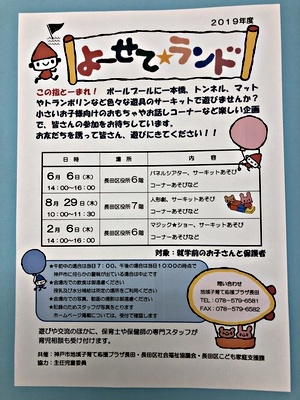 2019年度
よーせて★ランド
この指とーまれ! ボールプールに一本橋、トンネル、マット
やトランポリンなど色々な遊具のサーキットで遊びませんか?
小さいお子様向けのおもちゃやお話しコーナーなど楽しい企画
で、皆さんの参加をお待ちしています。
お友だちを誘って皆さん、遊びにきてください!!
日時 場所 内容
6月 6日(木) 14:00~16:00 長田区役所6階 パネルシアター、サーキットあそび コーナーあそびなど
8月 29日(木) 10:00~11:30 長田区役所7階 人形劇、サーキットあそび コーナーあそびなど
2月 6日(木) 14:00~16:00 長田区役所6階 マジック★ショー、サーキットあそび コーナーあそびなど
対象:就学前のお子さんと保護者
★会場内での飲食は御遠慮ください
問い合わせ
地域子育て応援プラザ長田
TEL:078-579-6581
FAX:078-579-6582
遊びや交流のほかに、保育士や保健師の専門スタッフが
育児相談も受け付けます。
共催:神戸市地域子育て応援プラザ長田・長田区社会福祉協議会・長田区こども家庭支援課
協力:主任児童委員